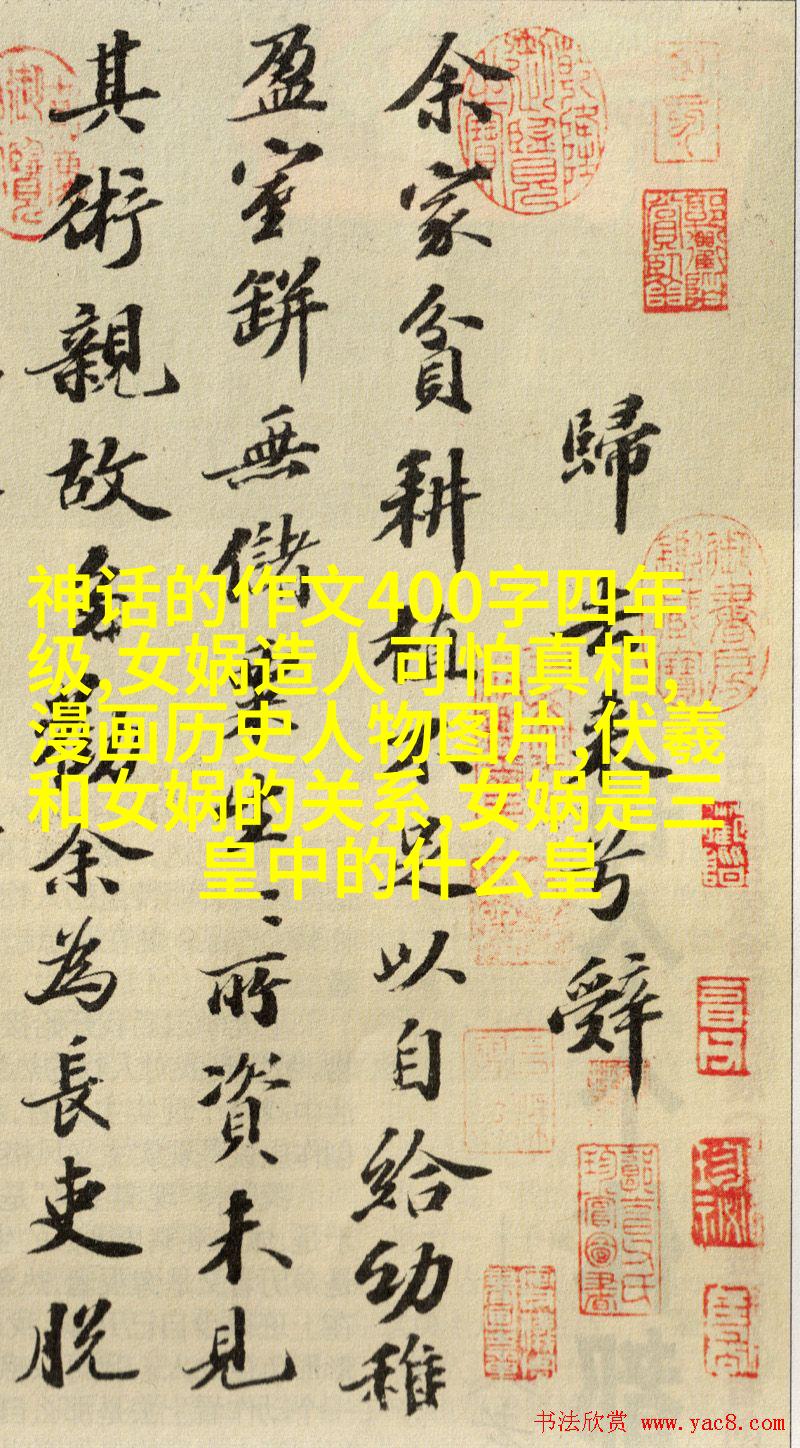 歸去来兮辭
余家貧耕植不足以自給幼稚
盈室缾無儲粟生〻所資未見
其術親故多勸余為長吏脱
神话的作文400字四年
级,女娲造人可怕真相,
漫画历史人物图片,伏羲
和女娲的关系,女娲是三
皇中的什么皇
书法欣赏 www.yac8.com